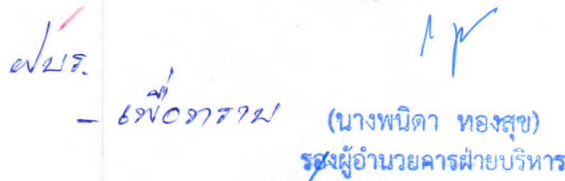 ฝบร.
- เพื่อทราบ
(นางพนิดา ทองสุข)
รองผู้อำนวยการฝ่ายบริหาร